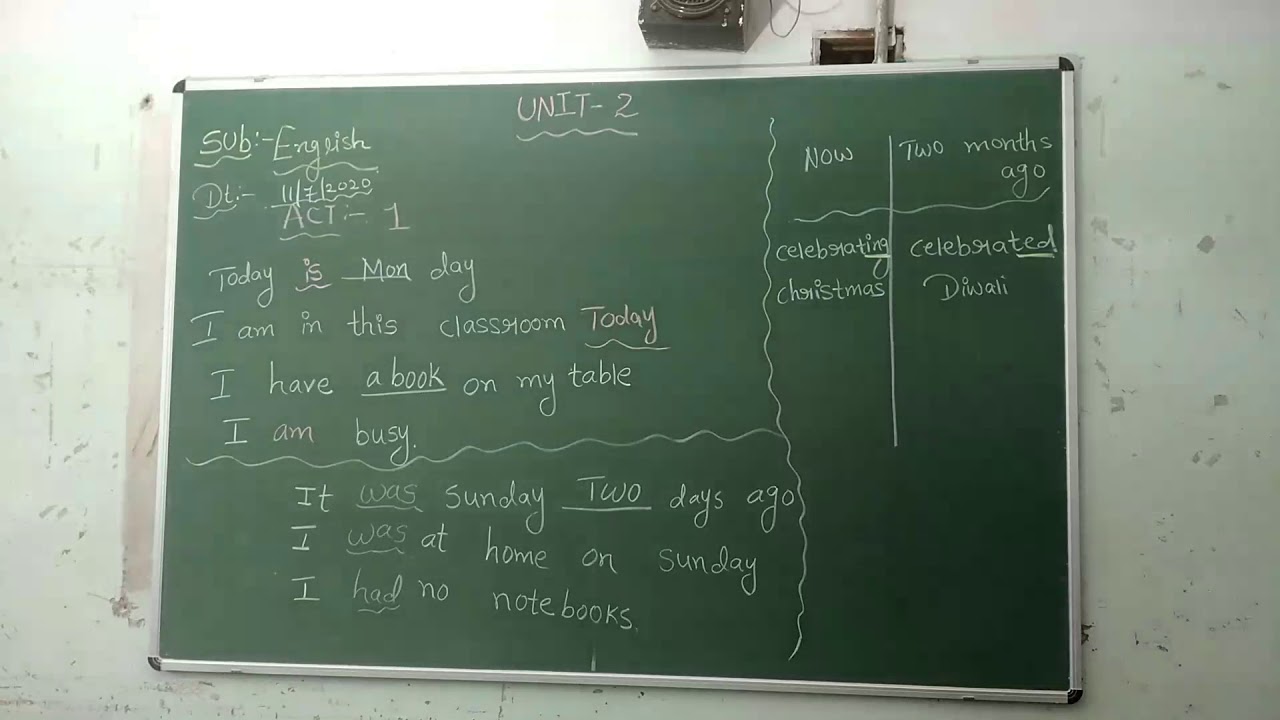 UNIT-2
Sub:- English
Dt:- 11/7/2020
ACT:- 1
Today is Mon day
I am in this classroom Today
I have a book on my table
I am busy.
It was sunday Two days ago
I was at home on sunday
I had no notebooks.
Now
Two months
ago
celebrating
celebrated
christmas
Diwali